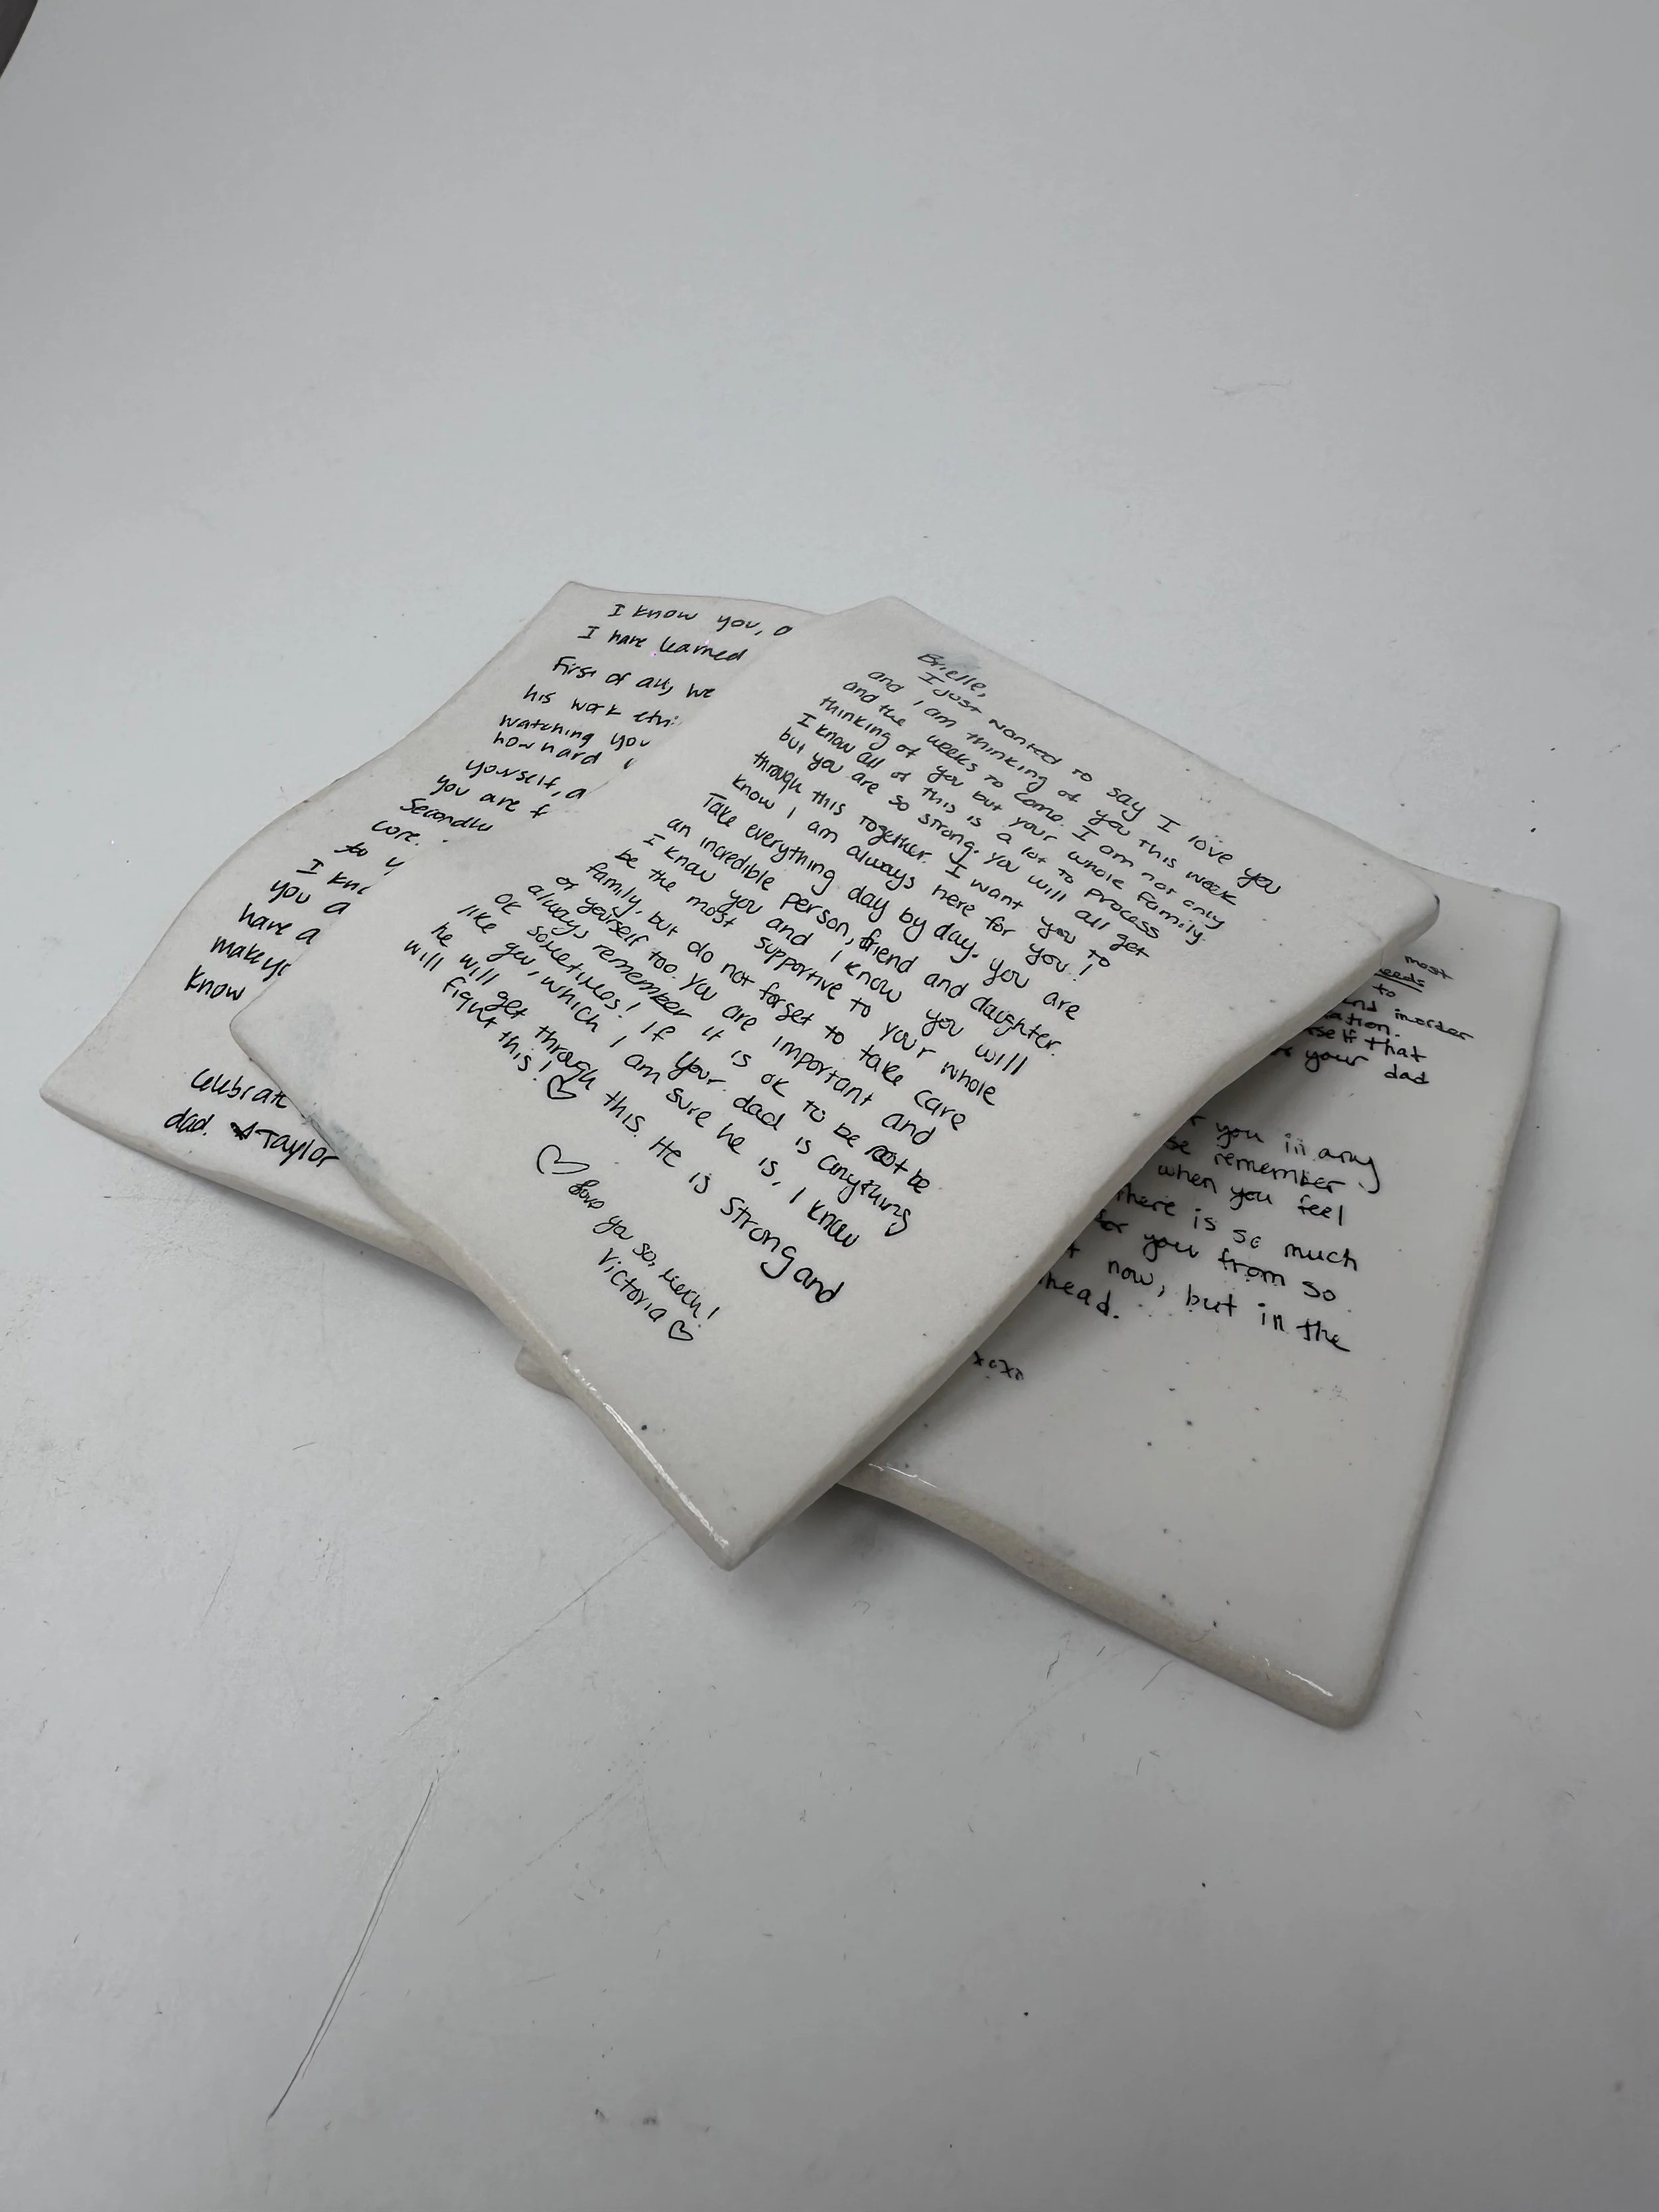 I know you, a
I have learned
First of all, we
his work ethi
watching you
how hard
yourself, a
you are f
Secondly
core.
to y
I kno
you a
have a
make yo
know
celebrate
dad. Taylor
Brielle,
I just wanted to say I love you
and I am thinking of you this week
and the weeks to come. I am not only
thinking of you but your whole family.
I know all of this is a lot to process
but you are so strong. You will all get
through this together. I want you to
know I am always here for you!
Take everything day by day. You are
an incredible person, friend and daughter.
I know you and I know you will
be the most supportive to your whole
family, but do not forget to take care
of yourself too. You are important and
always remember it is ok to be not be
ok sometimes! If your dad is anything
like you, which I am sure he is, I know
he will get through this. He is strong and
will fight this! ♡
♡ Love ya so, much!
Victoria ♡
most
need
to
and inorder
ation.
self that
your dad
you in any
se remember
when you feel
there is so much
for you from so
now, but in the
head.
xoxo